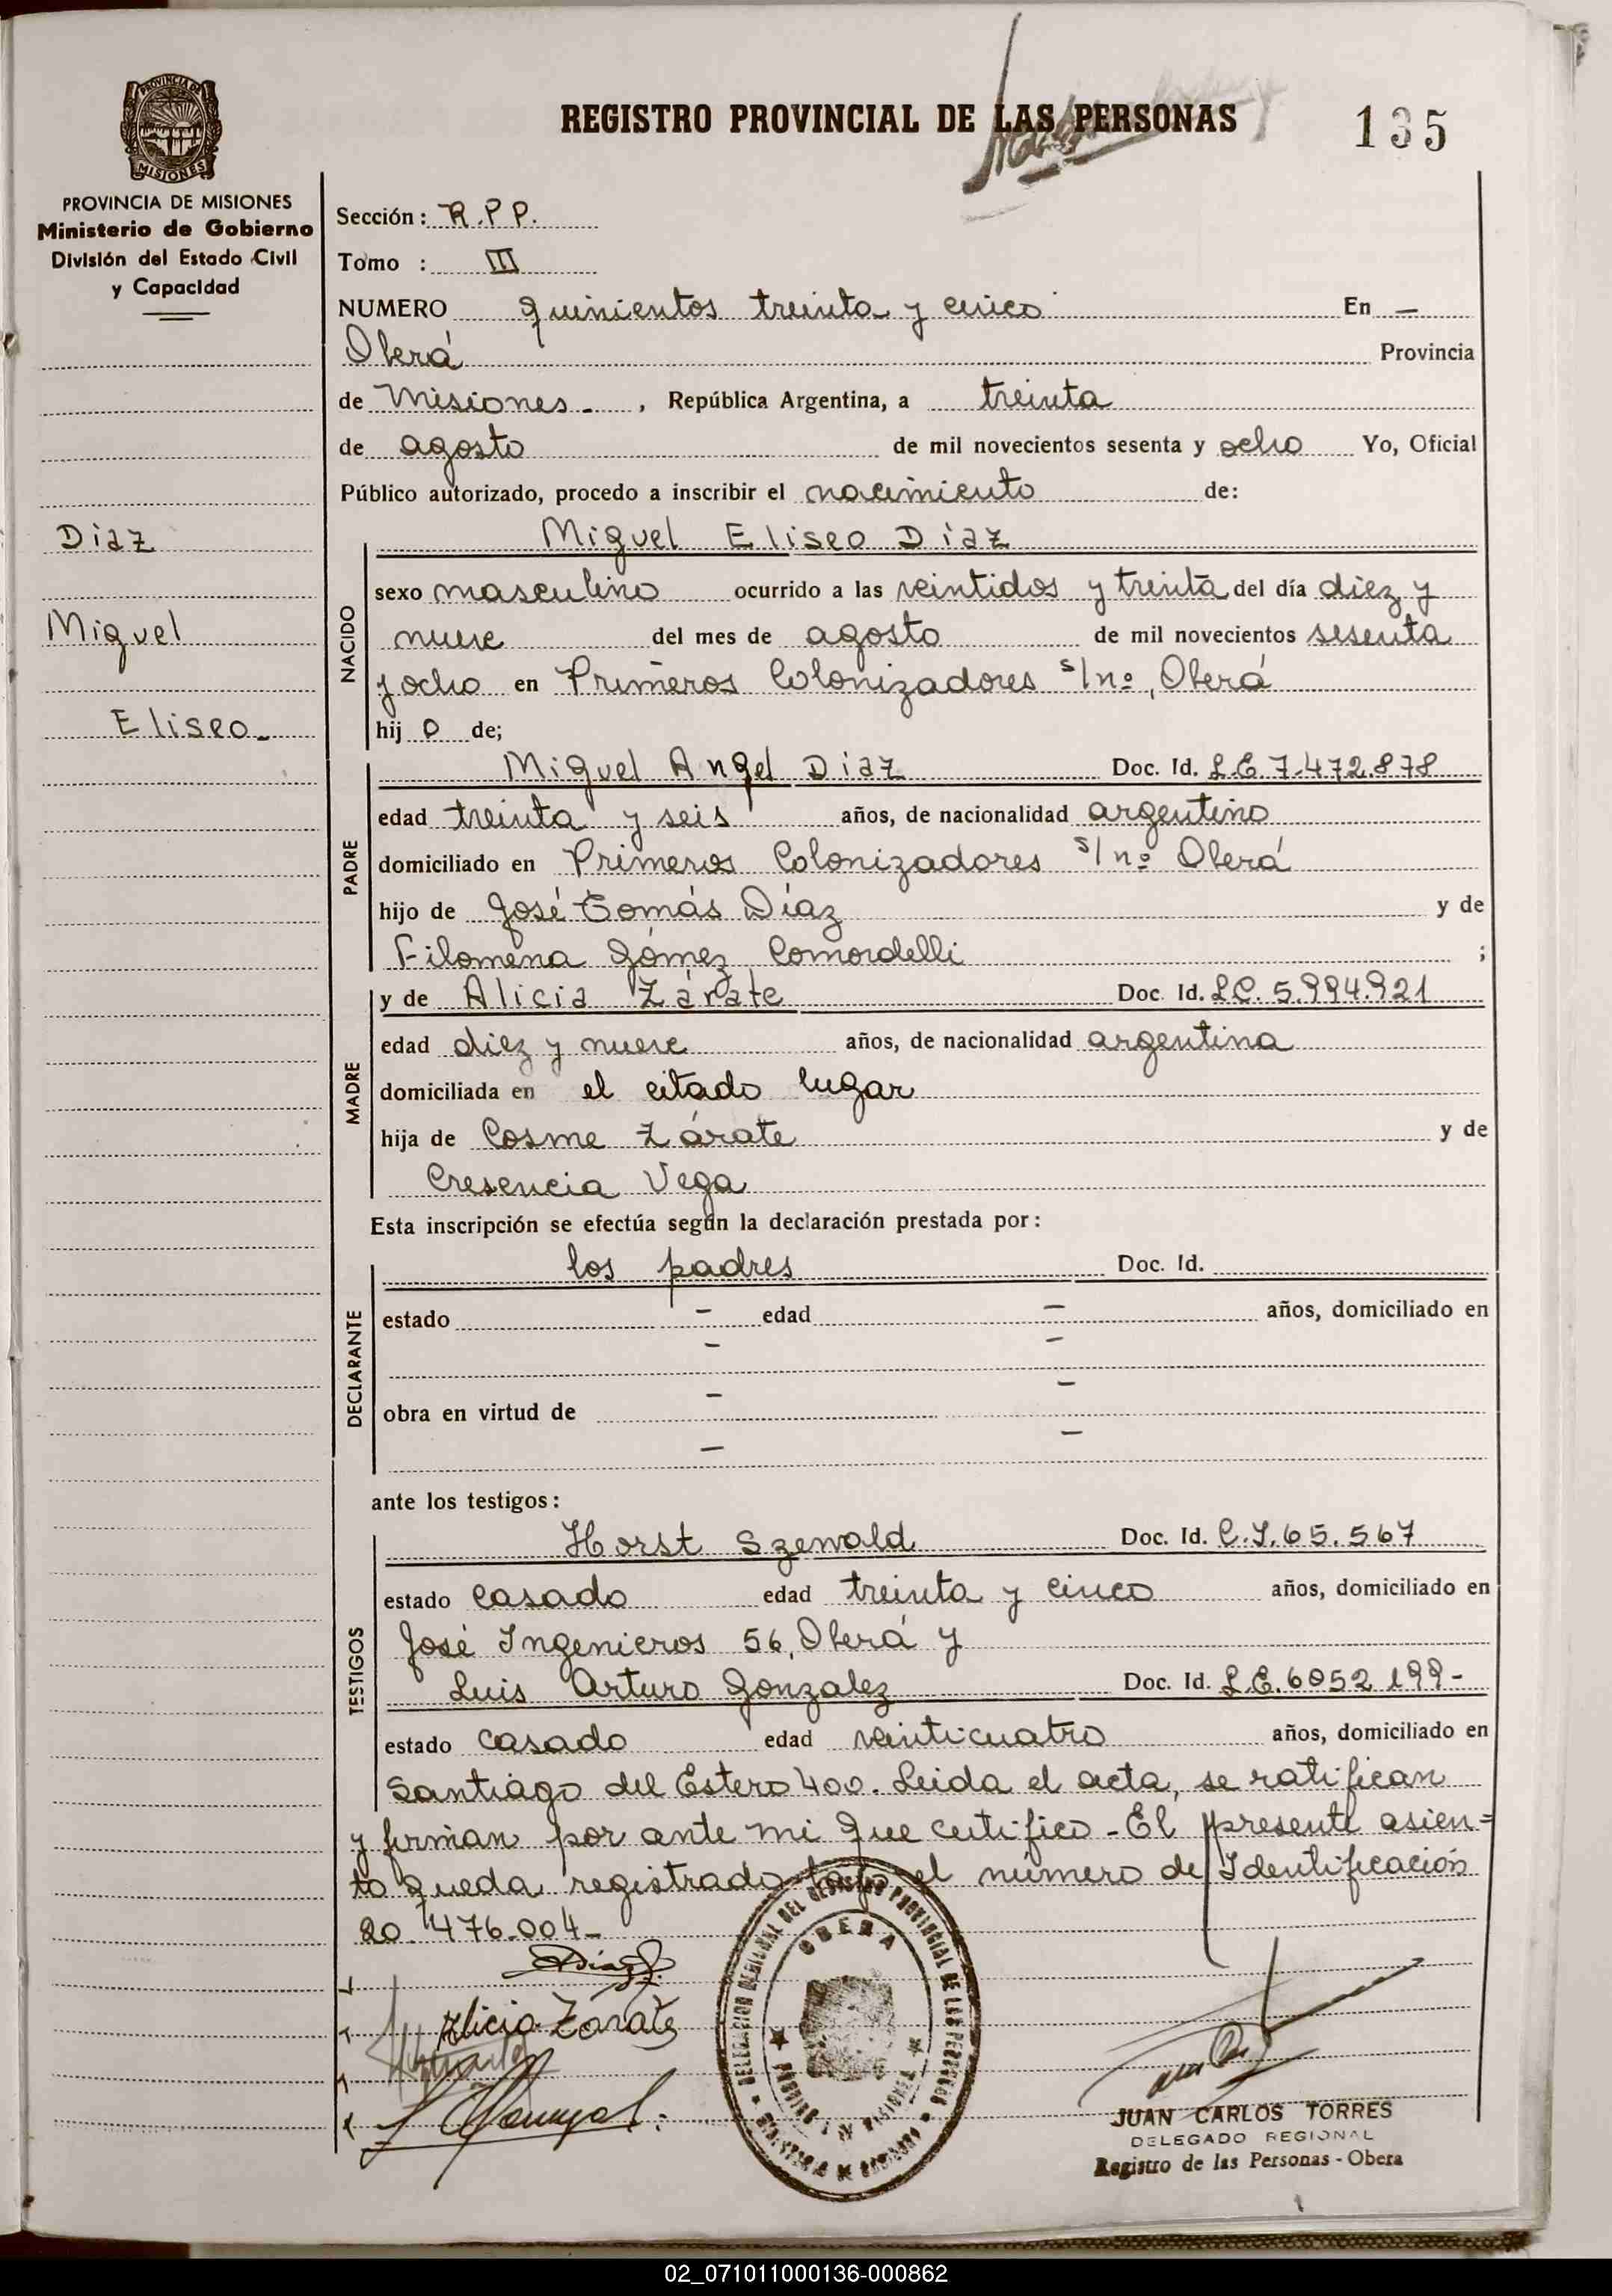 PROVINCIA DE MISIONES
REGISTRO PROVINCIAL DE LAS PERSONAS
135
PROVINCIA DE MISIONES
Ministerio de Gobierno
División del Estado Civil
y Capacidad
Sección: R.P.P.
Tomo : III
NUMERO quinientos treinta y cinco En —
Oberá Provincia
de Misiones - , República Argentina, a treinta
de agosto de mil novecientos sesenta y ocho Yo, Oficial
Público autorizado, procedo a inscribir el nacimiento de:
Diaz
Miguel
Eliseo -
NACIDO
Miguel Eliseo Diaz
sexo masculino ocurrido a las veintidos y treinta del día diez y
nueve del mes de agosto de mil novecientos sesenta
y ocho en Primeros Colonizadores s/nº, Oberá
hij o de;
PADRE
Miguel Angel Diaz Doc. Id. L.E. 7.472.878
edad treinta y seis años, de nacionalidad argentino
domiciliado en Primeros Colonizadores s/nº Oberá
hijo de José Tomás Díaz y de
Filomena Gómez Comordelli ;
MADRE
y de Alicia Zárate Doc. Id. L.C. 5.994.921
edad diez y nueve años, de nacionalidad argentina
domiciliada en el citado lugar
hija de Cosme Zárate y de
Cresencia Vega
Esta inscripción se efectúa según la declaración prestada por:
DECLARANTE
los padres Doc. Id.
estado — edad — años, domiciliado en
— —
obra en virtud de — —
— —
ante los testigos:
TESTIGOS
Horst Szewald Doc. Id. C.I. 65.567
estado casado edad treinta y cinco años, domiciliado en
José Ingenieros 56, Oberá y
Luis Arturo Gonzalez Doc. Id. L.E. 6052.199-
estado casado edad veinticuatro años, domiciliado en
Santiago del Estero 400. Leida el acta, se ratifican
y firman por ante mi que certifico - El presente asien=
to queda registrado bajo el número de Identificación
20.476.004-
Diaz
Alicia Zárate
DELEGACION REGIONAL DEL REGISTRO PROVINCIAL DE LAS PERSONAS
OBERA
JUAN CARLOS TORRES
DELEGADO REGIONAL
Registro de las Personas - Obera
02_071011000136-000862